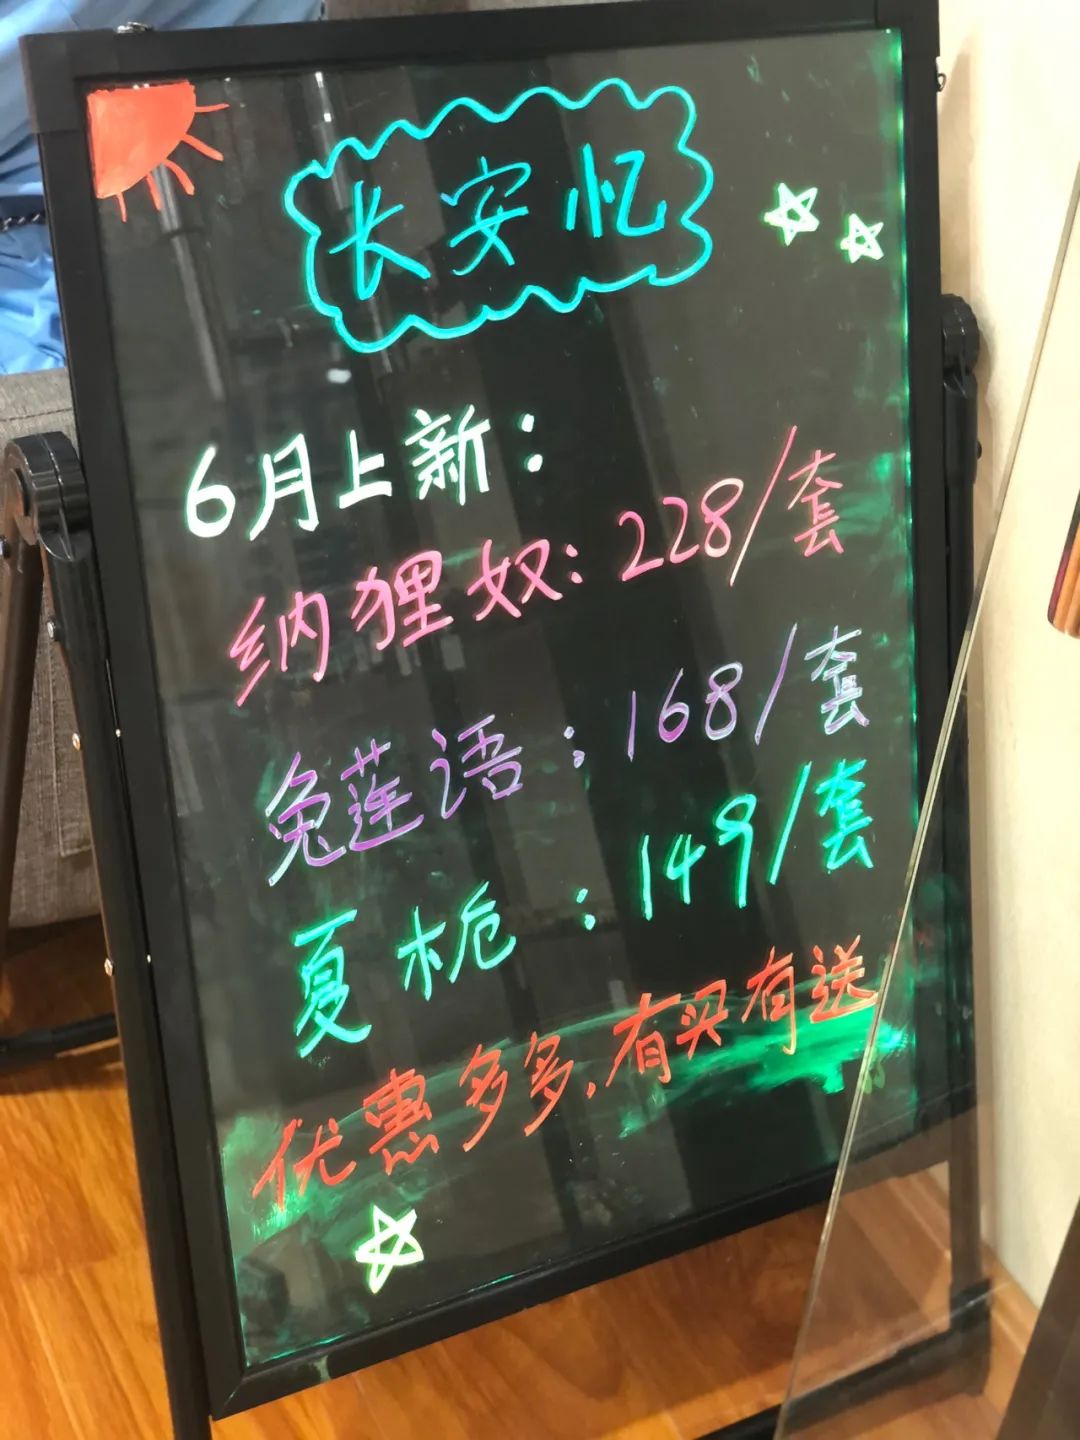 长安忆
6月上新:
纳狸奴:228/套
兔莲语:168/套
夏栀:149/套
优惠多多,有买有送